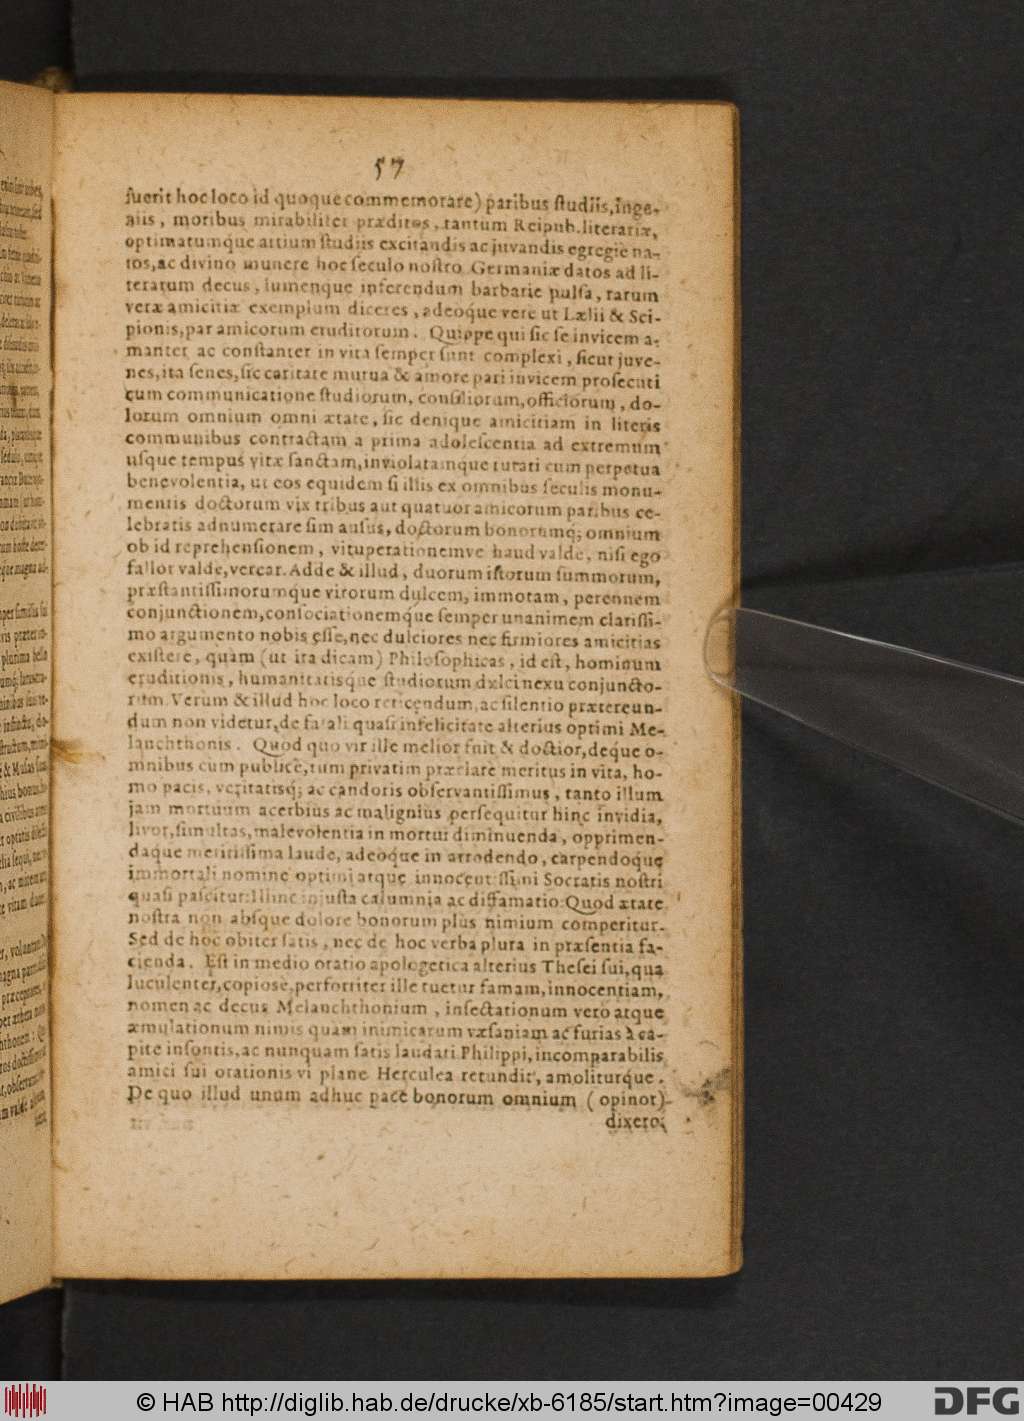 57
fuerit hoc loco id quoque commemorare) paribus studiis, inge-
niis, moribus mirabiliter præditos, tantum Reipub. literariæ,
optimatumque artium studiis excitandis ac juvandis egregie na-
tos, ac divino munere hoc seculo nostro Germaniæ datos ad li-
teratum decus, lumenque inferendum barbarie pulsa, rarum
veræ amicitiæ exemplum diceres, adeoque vere ut Lælii & Sci-
pionis, par amicorum eruditorum. Quippe qui sic se invicem a-
manter ac constanter in vita semper sunt complexi, sicut juve-
nes, ita senes, sic caritate mutua & amore pari invicem prosecuti
cum communicatione studiorum, consiliorum, officiorum, do-
lorum omnium omni ætate, sic denique amicitiam in literis
communibus contractam a prima adolescentia ad extremum
usque tempus vitæ sanctam, inviolatamque tutati cum perpetua
benevolentia, ut eos equidem si illis ex omnibus seculis monu-
mentis doctorum vix tribus aut quatuor amicorum paribus ce-
lebratis adnumerare sim ausus, doctorum bonorumq; omnium
ob id reprehensionem, vituperationemve haud valde, nisi ego
fallor valde, verear. Adde & illud, duorum istorum summorum,
præstantissimorumque virorum dulcem, immotam, perennem
conjunctionem, consociationemque semper unanimem clarissi-
mo argumento nobis esse, nec dulciores nec firmiores amicitias
existere, quàm (ut ita dicam) Philosophicas, id est, hominum
eruditionis, humanitatisque studiorum dulci nexu conjuncto-
rum. Verum & illud hoc loco reticendum, ac silentio prætereun-
dum non videtur, de fatali quasi infelicitate alterius optimi Me-
lanchthonis. Quod quo vir ille melior fuit & doctior, deque o-
mnibus cum publice, tum privatim præclare meritus in vita, ho-
mo pacis, veritatisq; ac candoris observantissimus, tanto illum
jam mortuum acerbius ac malignius persequitur hinc invidia,
livor, simultas, malevolentia in mortui diminuenda, opprimen-
daque meritissima laude, adeoque in arrodendo, carpendoque
immortali nomine optimi atque innocentissimi Socratis nostri
quasi pascitur: Illinc injusta calumnia ac diffamatio: Quod ætate
nostra non absque dolore bonorum plus nimium comperitur.
Sed de hoc obiter satis, nec de hoc verba plura in præsentia fa-
cienda. Est in medio oratio apologetica alterius Thesei sui, qua
luculenter, copiose, perfortiter ille tuetur famam, innocentiam,
nomen ac decus Melanchthonium, insectationum verò atque
æmulationum nimis quàm inimicarum væsaniam ac furias à ca-
pite insontis, ac nunquam satis laudati Philippi, incomparabilis
amici sui orationis vi plane Herculea retundit, amoliturque.
De quo illud unum adhuc pace bonorum omnium (opinor)
dixero;
© HAB http://diglib.hab.de/drucke/xb-6185/start.htm?image=00429
DFG